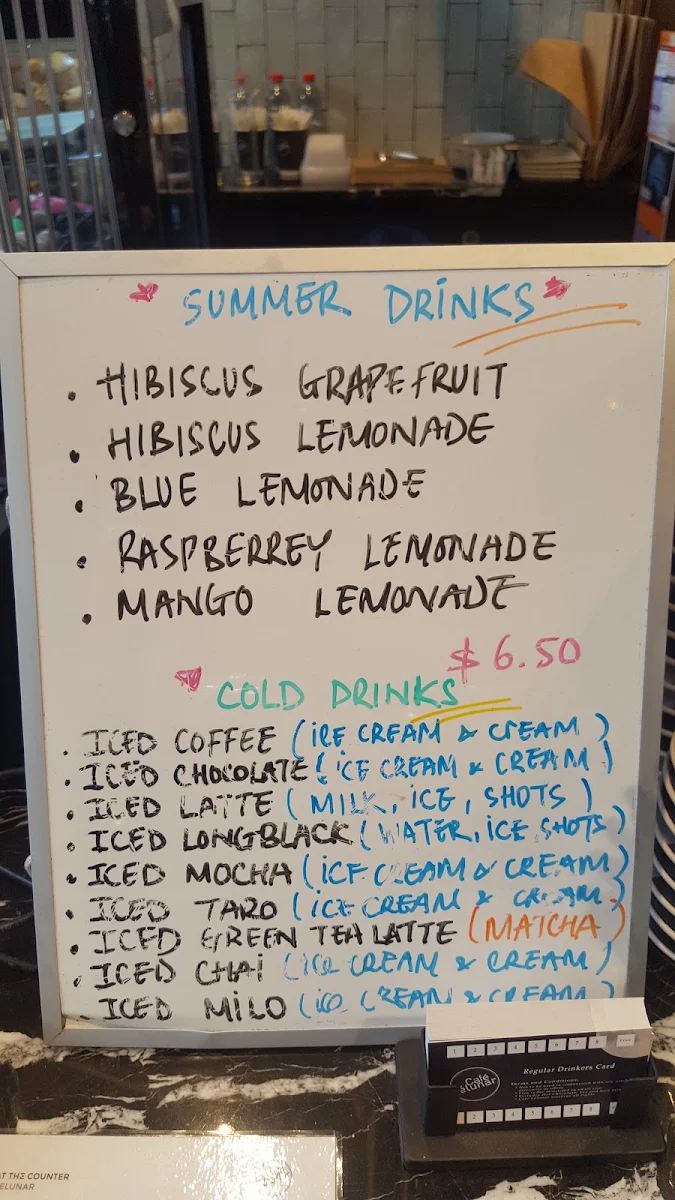 SUMMER DRINKS
• HIBISCUS GRAPEFRUIT
• HIBISCUS LEMONADE
• BLUE LEMONADE
• RASPBERREY LEMONADE
• MANGO LEMONADE
$6.50
COLD DRINKS
• ICED COFFEE (ICE CREAM & CREAM)
• ICED CHOCOLATE (ICE CREAM & CREAM)
• ICED LATTE (MILK, ICE, SHOTS)
• ICED LONGBLACK (WATER, ICE SHOTS)
• ICED MOCHA (ICE CREAM & CREAM)
• ICED TARO (ICE CREAM & CREAM)
• ICED GREEN TEA LATTE (MATCHA)
• ICED CHAI (ICE CREAM & CREAM)
• ICED MILO (ICE CREAM & CREAM)
1 2 3 4 5 6 7 8 Free
Café
Regular Drinkers Card
Terms and Conditions:
1 2 3 4 5 6 7 8
AT THE COUNTER
ELUNAR